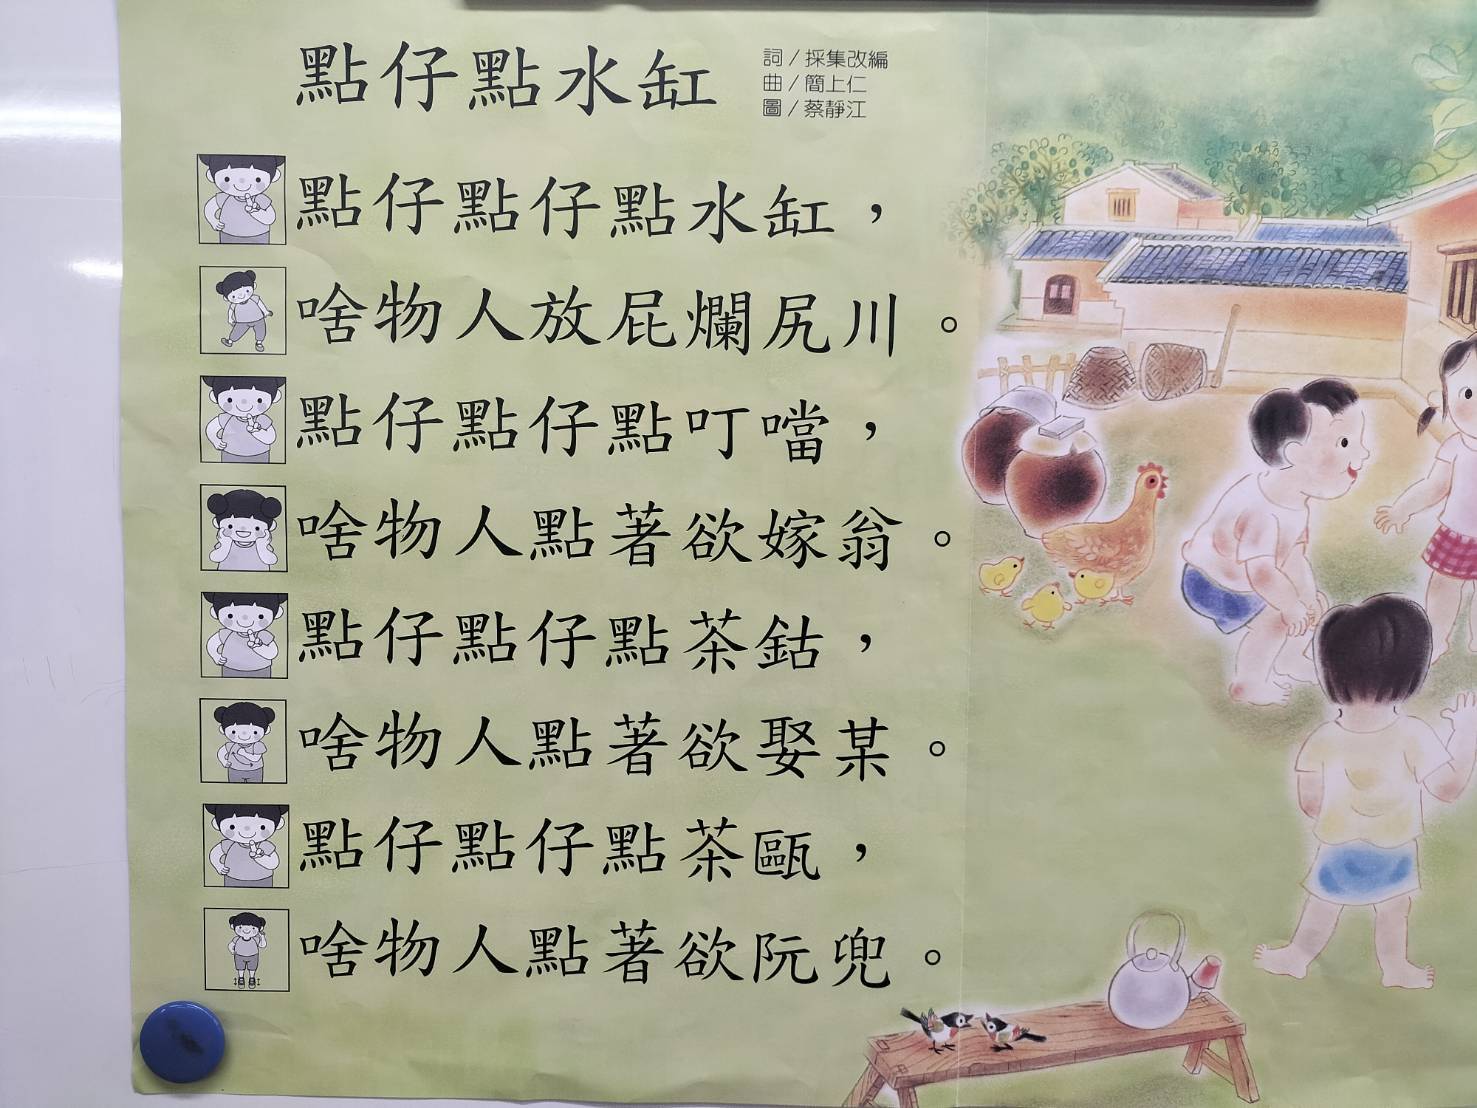 點仔點水缸
詞/採集改編
曲/簡上仁
圖/蔡靜江
點仔點仔點水缸，
啥物人放屁爛尻川。
點仔點仔點叮噹，
啥物人點著欲嫁翁。
點仔點仔點茶鈷，
啥物人點著欲娶某。
點仔點仔點茶甌，
啥物人點著欲阮兜。